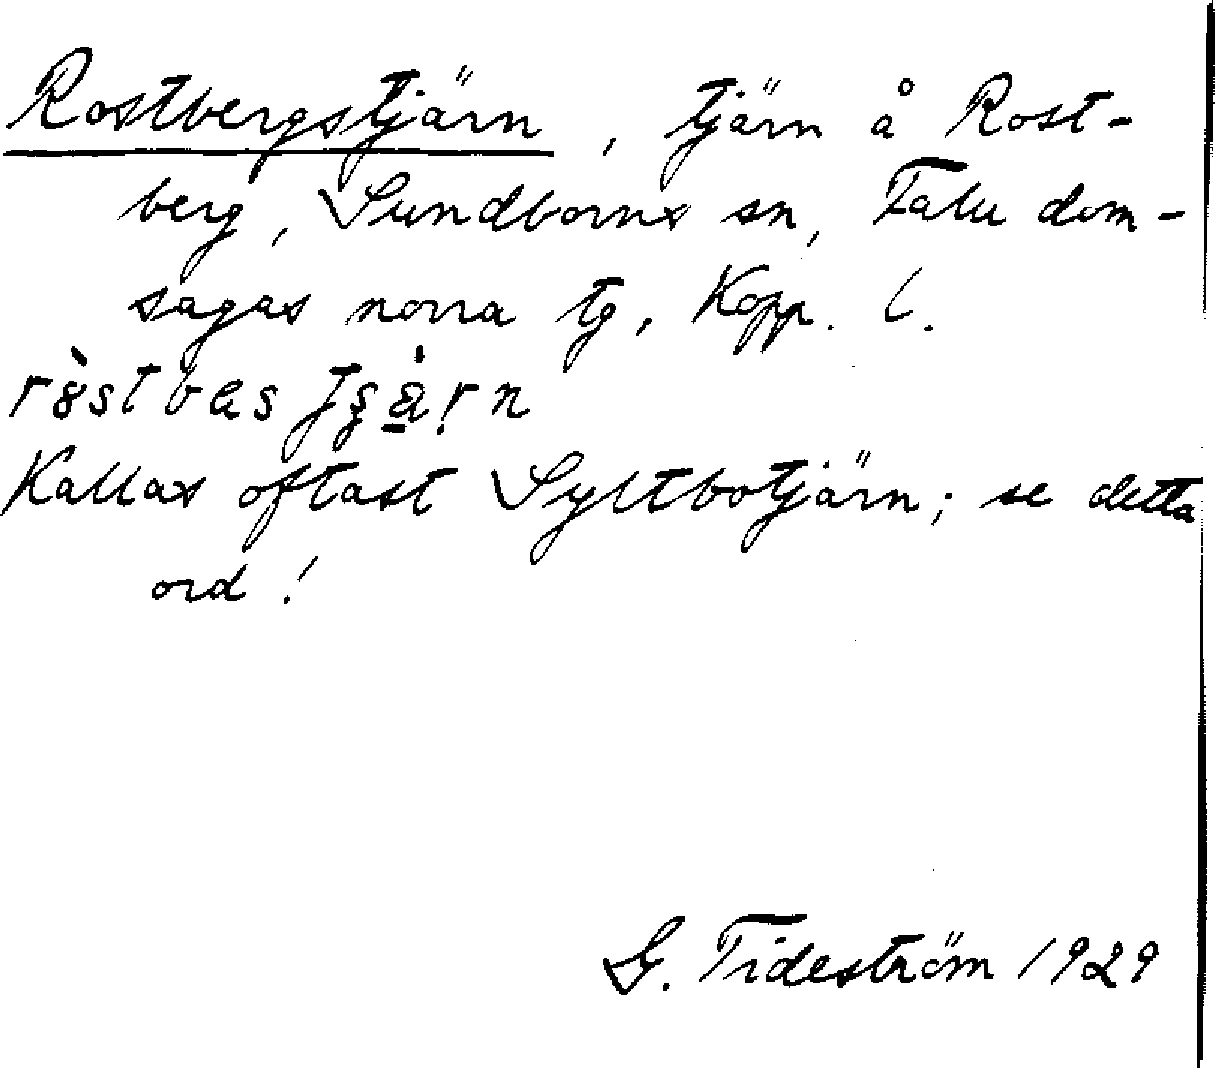 Rostbergstjärn, tjärn å Rost-
berg, Sundborns sn, Falu dom-
sagas norra tg, Kopp. l.
Kallas oftast Syltbotjärn; se detta
ord!
G. Tideström 1929